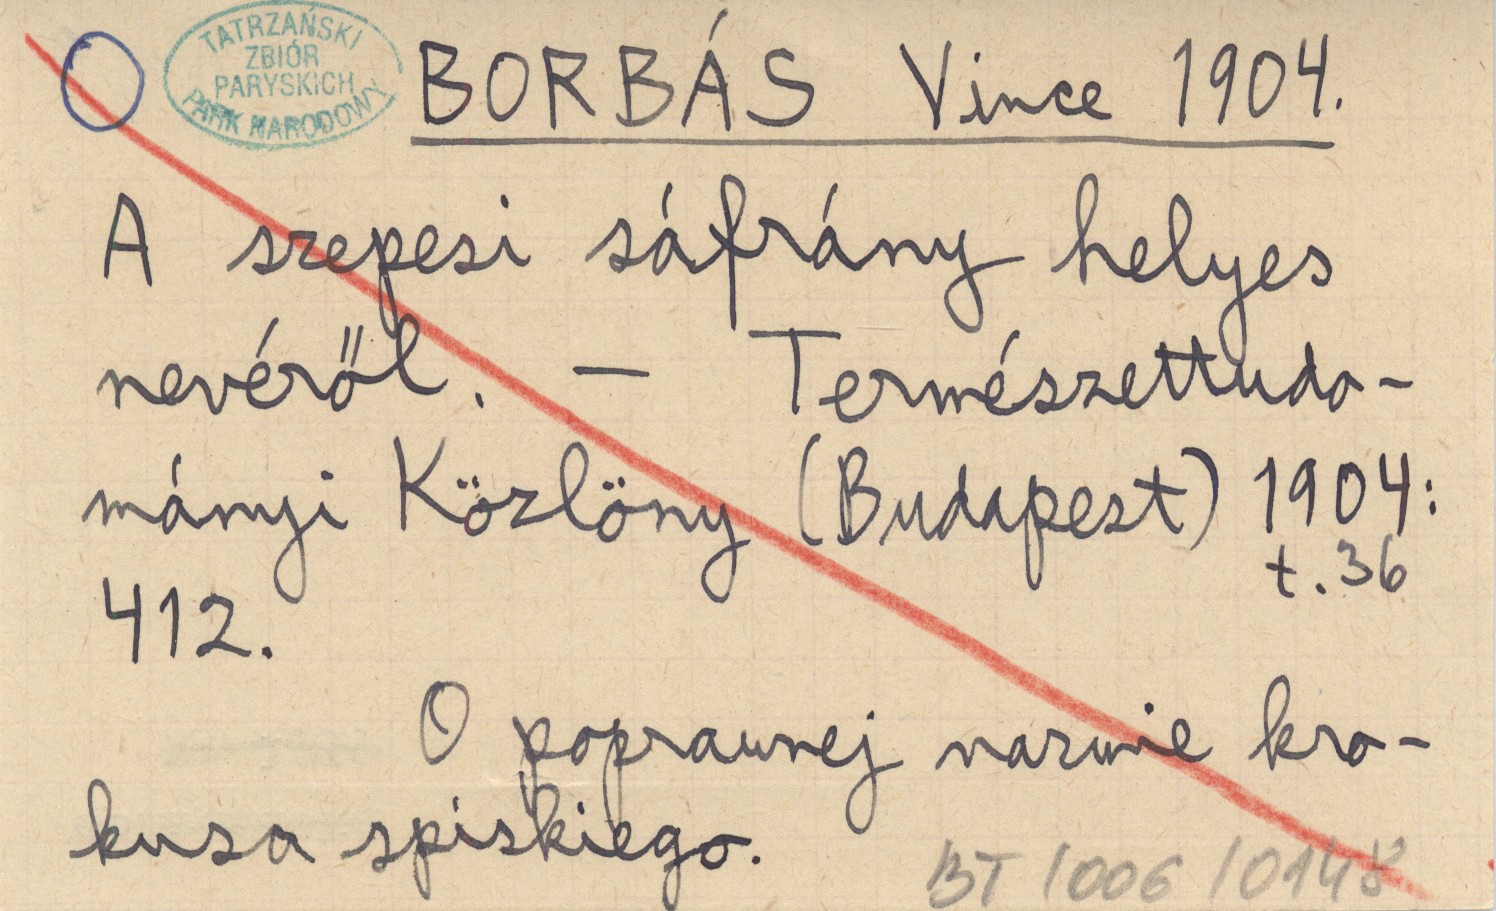 TATRZAŃSKI
ZBIÓR
PARYSKICH
PARK NARODOWY
BORBÁS Vince 1904.
A szepesi sáfrány helyes
nevéről. — Természettudo-
mányi Közlöny (Budapest) 1904:
t. 36
412.
O poprawnej nazwie kro-
kusa spiskiego.
BT 1006 10148